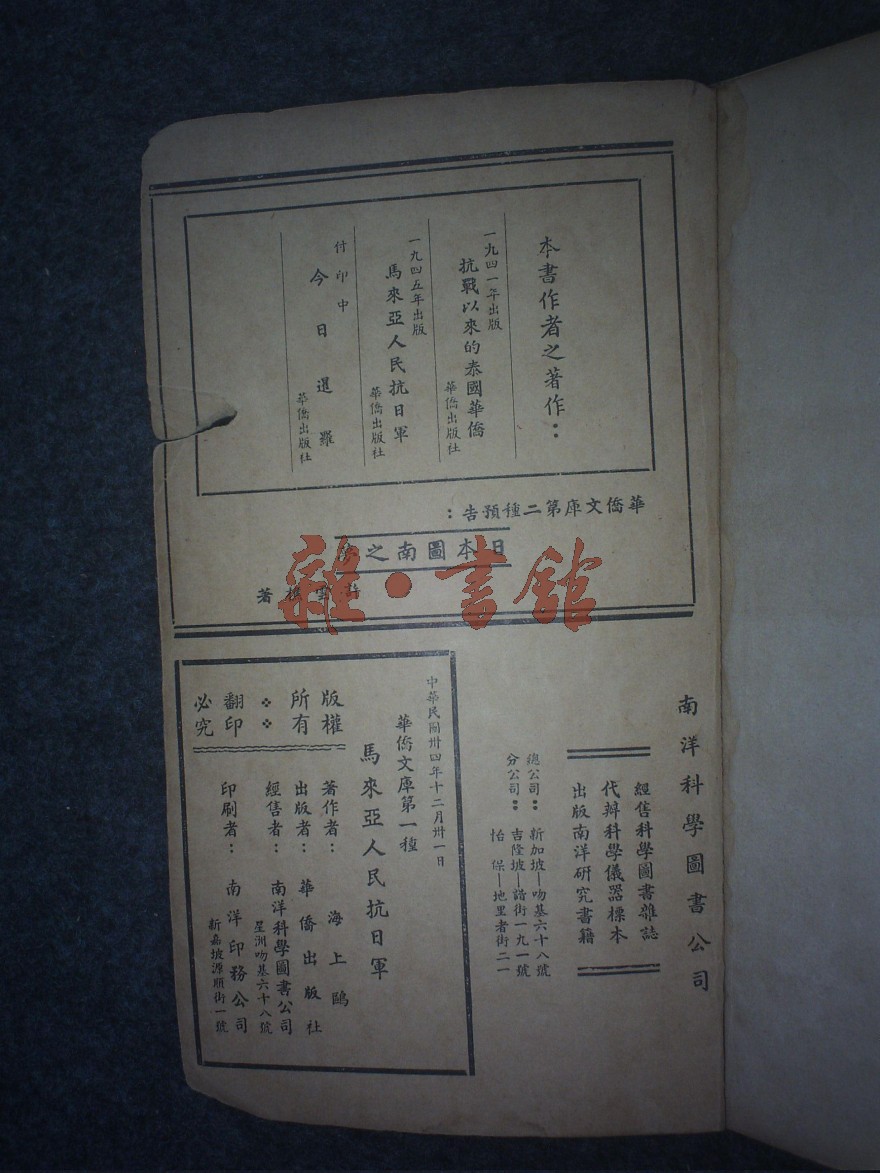 本書作者之著作：
一九四一年出版
抗戰以來的泰國華僑
華僑出版社
一九四五年出版
馬來亞人民抗日軍
華僑出版社
付印中
今日暹羅
華僑出版社
華僑文庫第二種預告：
日本圖南之
著
南洋科學圖書公司
經售科學圖書雜誌
代辦科學儀器標本
出版南洋研究書籍
總公司：新加坡—吻基六十八號
分公司：吉隆坡—諧街一九一號
怡保—地里者街二一
中華民國卅四年十二月卅一日
華僑文庫第一種
馬來亞人民抗日軍
版權所有
翻印必究
著作者：海上鷗
出版者：華僑出版社
經售者：南洋科學圖書公司
星洲吻基六十八號
印刷者：南洋印務公司
新嘉坡源順街一號
雜·書館